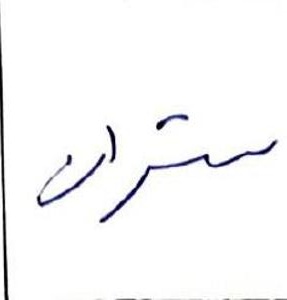 ستران